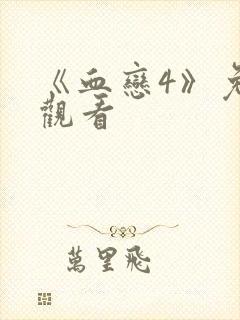 《血戀4》免
觀看
萬里飛